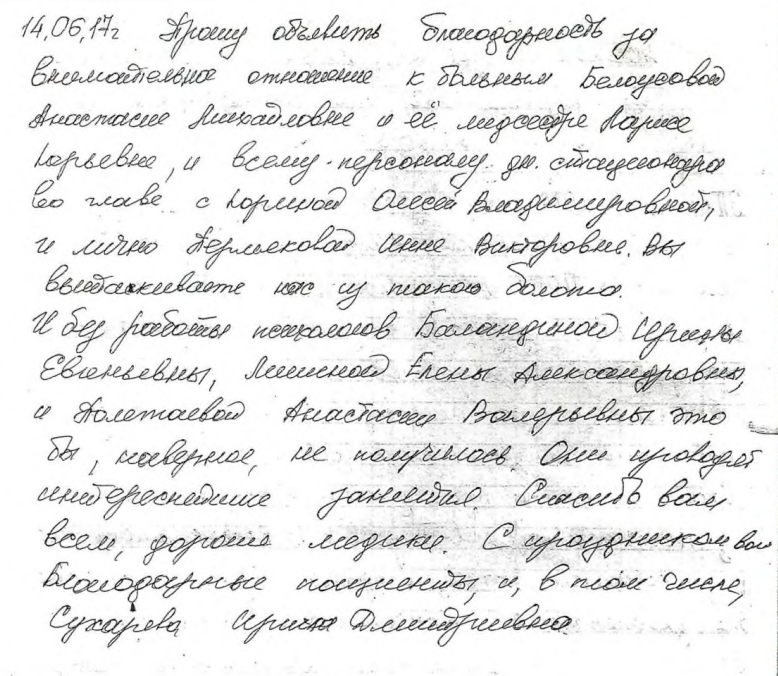 14,06,17г Прошу объявить благодарность за
внимательное отношение к больным Белоусовой
Анастасие Михайловне и её медсестре Ларисе
Юрьевне, и всему персоналу дн. стационара
во главе с Юриной Олесей Владимировной,
и лично Пермяковой Инне Викторовне. Вы
вытаскиваете нас из такого болота.
И без работы психологов Баландиной Ирины
Евгеньевны, Елены Александровны,
и Полетаевой Анастасии Валерьевны это
бы, наверное, не получилось. Они проводят
интереснейшие занятия. Спасибо вам
всем, дорогие медики. С праздником вам
Благодарные пациенты, и, в том числе,
Сухарева Ирина Дмитриевна